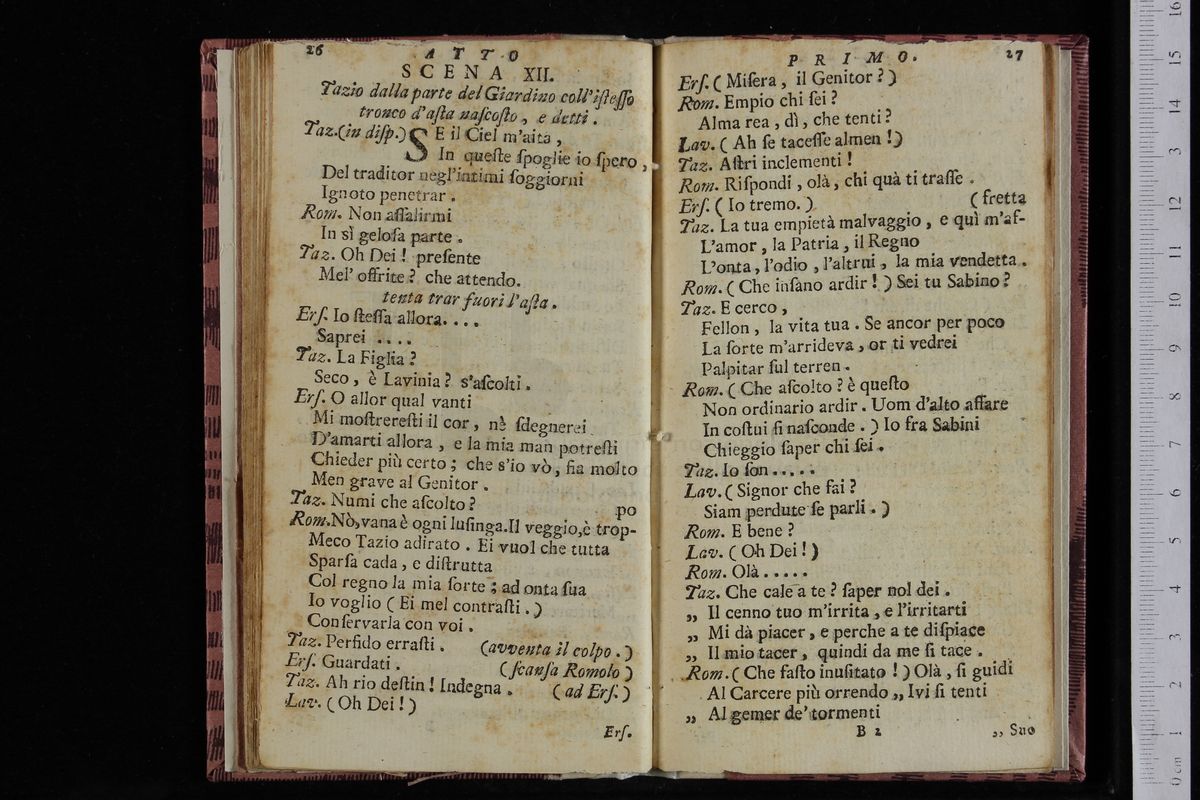 26
ATTO
SCENA XII.
Tazio dalla parte del Giardino coll'iſteſſo
tronco d'aſta naſcoſto, e detti.
Taz.(in diſp.) SE il Ciel m'aita,
In queſte ſpoglie io ſpero,
Del traditor negl'intimi ſoggiorni
Ignoto penetrar.
Rom. Non aſſalirmi
In sì geloſa parte.
Taz. Oh Dei! preſente
Mel' offrite? che attendo.
tenta trar fuori l'aſta.
Erſ. Io ſteſſa allora. . . .
Saprei . . . .
Taz. La Figlia?
Seco, è Lavinia? s'aſcolti.
Erſ. O allor qual vanti
Mi moſtrereſti il cor, nè ſdegnerei
D'amarti allora, e la mia man potreſti
Chieder più certo; che s'io vò, ſia molto
Men grave al Genitor.
Taz. Numi che aſcolto? po
Rom.Nò,vana è ogni luſinga.Il veggio,è trop-
Meco Tazio adirato. Ei vuol che tutta
Sparſa cada, e diſtrutta
Col regno la mia ſorte; ad onta ſua
Io voglio (Ei mel contraſti.)
Conſervarla con voi.
Taz. Perfido erraſti. (avventa il colpo.)
Erſ. Guardati. (ſcanſa Romolo)
Taz. Ah rio deſtin! Indegna. (ad Erſ.)
Lav. (Oh Dei!)
Erſ.
PRIMO.
27
Erſ. (Miſera, il Genitor?)
Rom. Empio chi ſei?
Alma rea, dì, che tenti?
Lav. (Ah ſe taceſſe almen!)
Taz. Aſtri inclementi!
Rom. Riſpondi, olà, chi quà ti traſſe.
Erſ. (Io tremo.) (fretta
Taz. La tua empietà malvaggio, e quì m'af-
L'amor, la Patria, il Regno
L'onta, l'odio, l'altrui, la mia vendetta.
Rom. (Che inſano ardir!) Sei tu Sabino?
Taz. E cerco,
Fellon, la vita tua. Se ancor per poco
La ſorte m'arrideva, or ti vedrei
Palpitar ſul terren.
Rom. (Che aſcolto? è queſto
Non ordinario ardir. Uom d'alto affare
In coſtui ſi naſconde.) Io fra Sabini
Chieggio ſaper chi ſei.
Taz. Io ſon . . . . .
Lav. (Signor che fai?
Siam perdute ſe parli.)
Rom. E bene?
Lav. (Oh Dei!)
Rom. Olà . . . . .
Taz. Che cale a te? ſaper nol dei.
„ Il cenno tuo m'irrita, e l'irritarti
„ Mi dà piacer, e perche a te diſpiace
„ Il mio tacer, quindi da me ſi tace.
Rom. (Che faſto inuſitato!) Olà, ſi guidi
Al Carcere più orrendo „ Ivi ſi tenti
„ Al gemer de' tormenti
B 2
„ Suo